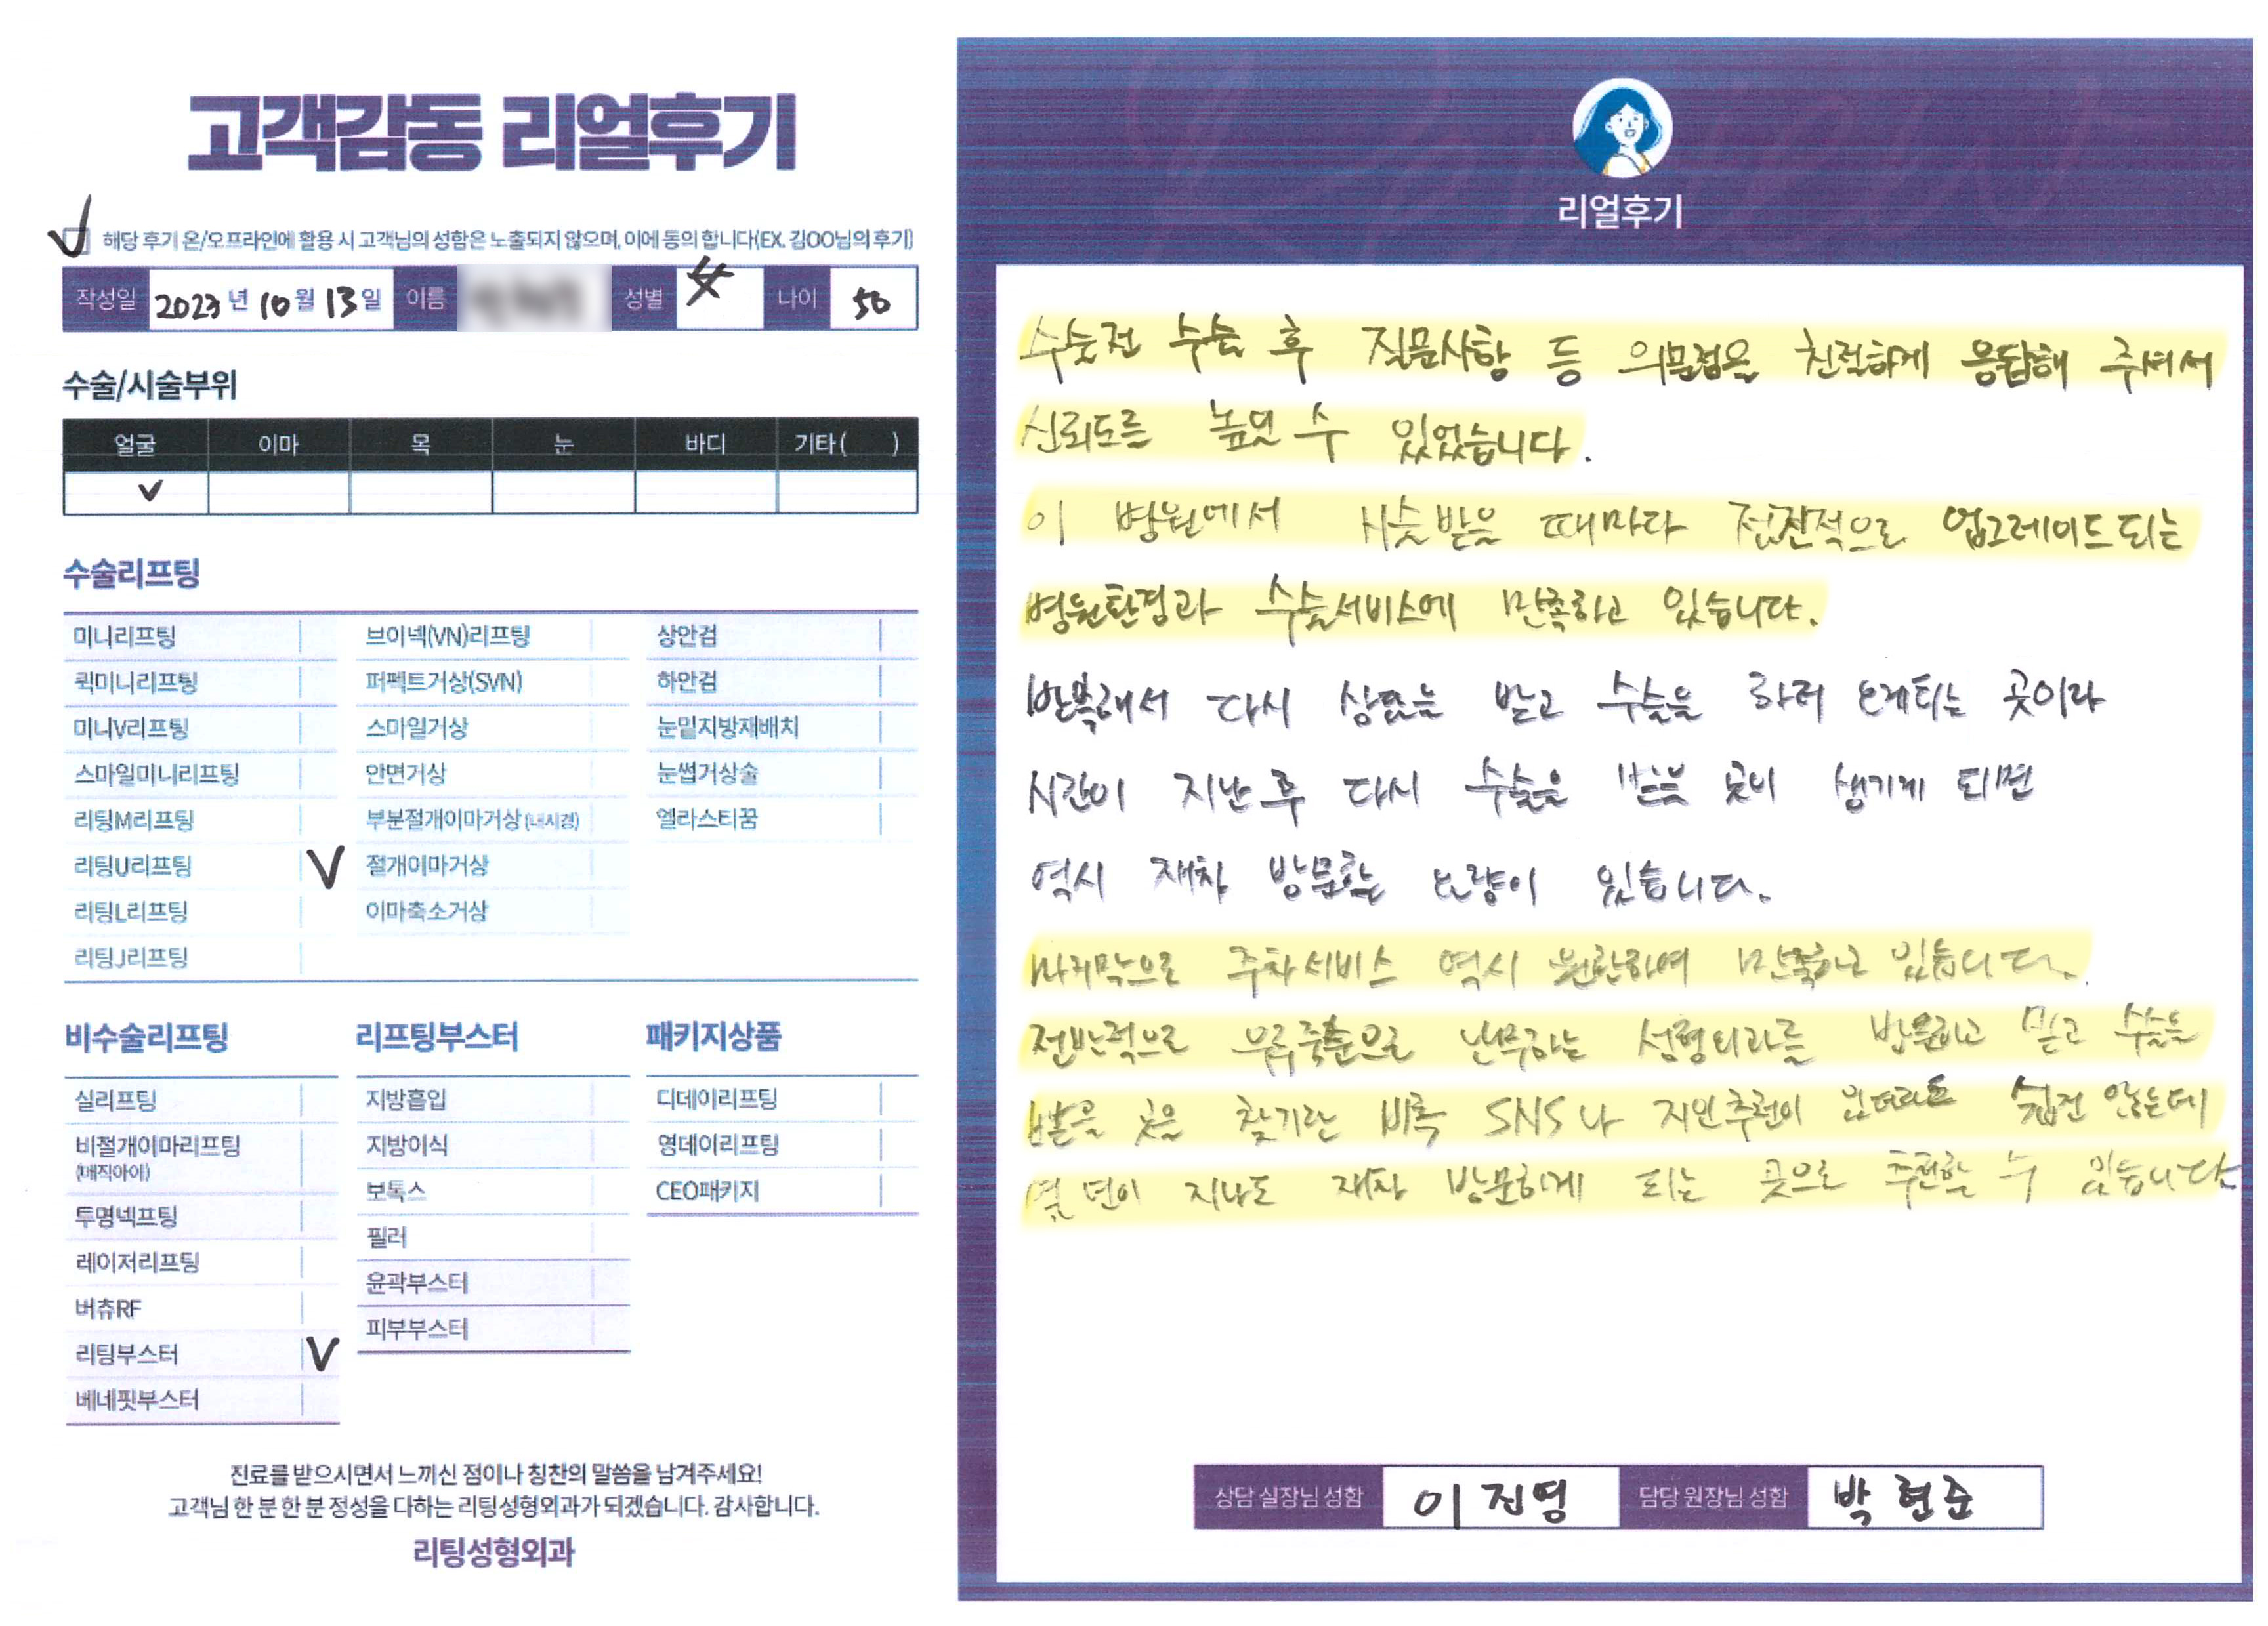 고객감동 리얼후기
해당 후기 온/오프라인에 활용 시 고객님의 성함은 노출되지 않으며, 이에 동의 합니다(EX. 김OO님의 후기)
작성일 2023년 10월 13일 이름 성별 女 나이 50
수술/시술부위
얼굴 이마 목 눈 바디 기타( )
수술리프팅
미니리프팅 브이넥(VN)리프팅 상안검
퀵미니리프팅 퍼펙트거상(SVN) 하안검
미니V리프팅 스마일거상 눈밑지방재배치
스마일미니리프팅 안면거상 눈썹거상술
리팅M리프팅 부분절개이마거상(내시경) 엘라스티꿈
리팅U리프팅 절개이마거상
리팅L리프팅 이마축소거상
리팅J리프팅
비수술리프팅 리프팅부스터 패키지상품
실리프팅 지방흡입 디데이리프팅
비절개이마리프팅 지방이식 영데이리프팅
(매직아이) 보톡스 CEO패키지
투명넥프팅 필러
레이저리프팅 윤곽부스터
버츄RF 피부부스터
리팅부스터
베네핏부스터
진료를 받으시면서 느끼신 점이나 칭찬의 말씀을 남겨주세요!
고객님 한 분 한 분 정성을 다하는 리팅성형외과가 되겠습니다. 감사합니다.
리팅성형외과
리얼후기
수술전 수술 후 질문사항 등 의문점을 친절하게 응답해 주셔서
신뢰도를 높일 수 있었습니다.
이 병원에서 시술받을 때마다 전진적으로 업그레이드되는
병원환경과 수술서비스에 만족하고 있습니다.
반복해서 다시 상담을 받고 수술을 하러 오게되는 곳이라
시간이 지난 후 다시 수술을 받을 곳이 생기게 되면
역시 재차 방문할 요량이 있습니다.
마지막으로 주차서비스 역시 원활하여 만족하고 있습니다.
전반적으로 우후죽순으로 난무하는 성형외과를 방문하고 믿고 수술을
받을 곳을 찾기란 비록 SNS나 지인추천이 있더라도 쉽진 않는데
몇 년이 지나도 재차 방문하게 되는 곳으로 추천할 수 있습니다
상담 실장님 성함 이진영 담당 원장님 성함 박현준